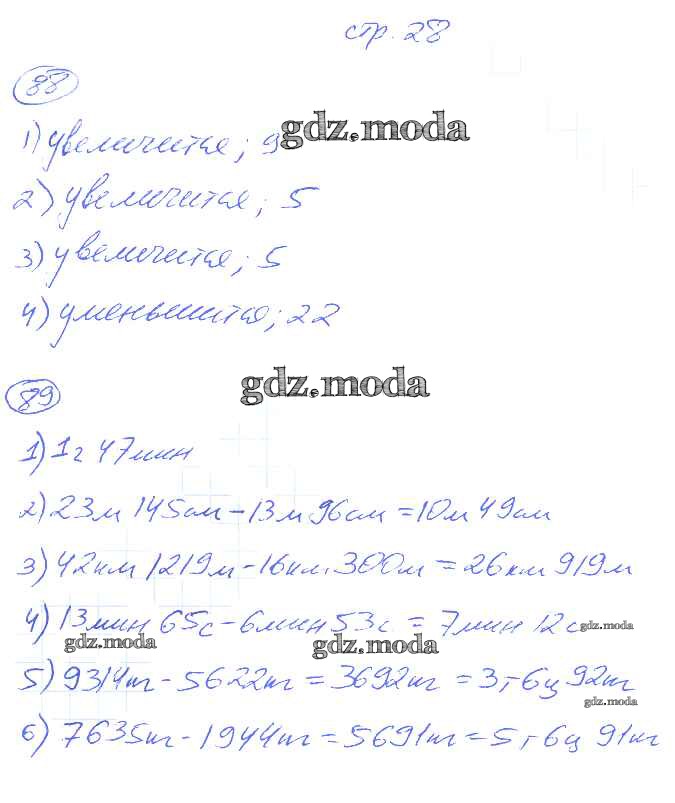 стр. 28
88
1) увеличится; 9
gdz.moda
2) увеличится; 5
3) увеличится; 5
4) уменьшится; 22
gdz.moda
89
1) 1г 47мин
2) 23м 145см - 13м 96см = 10м 49см
3) 42км 1219м - 16км 300м = 26км 919м
4) 13мин 65с - 6мин 53с = 7мин 12с
gdz.moda
gdz.moda
gdz.moda
5) 9314кг - 5622кг = 3692кг = 3т 6ц 92кг
gdz.moda
6) 7635кг - 1944кг = 5691кг = 5т 6ц 91кг